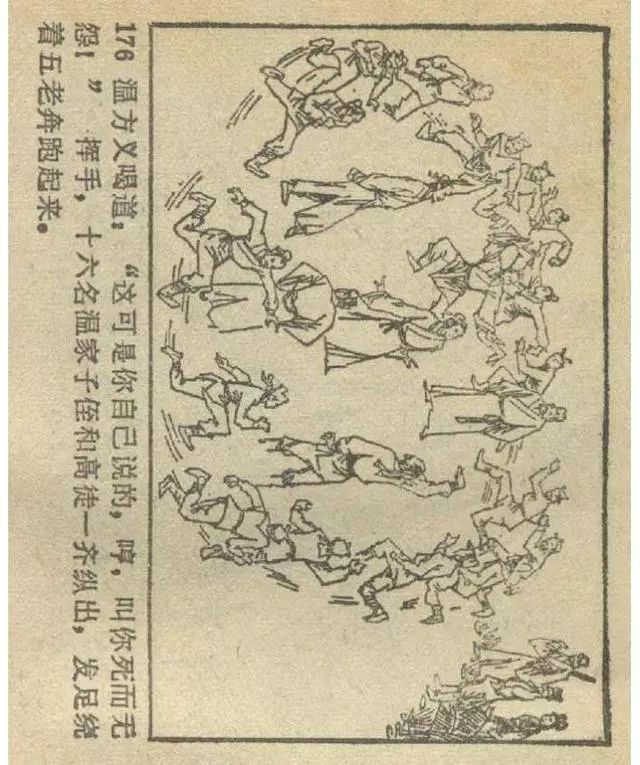 176 温方义喝道：“这可是你自己说的，哼，叫你死而无
怨！” 挥手，十六名温家子侄和高徒一齐纵出，发足绕
着五老奔跑起来。